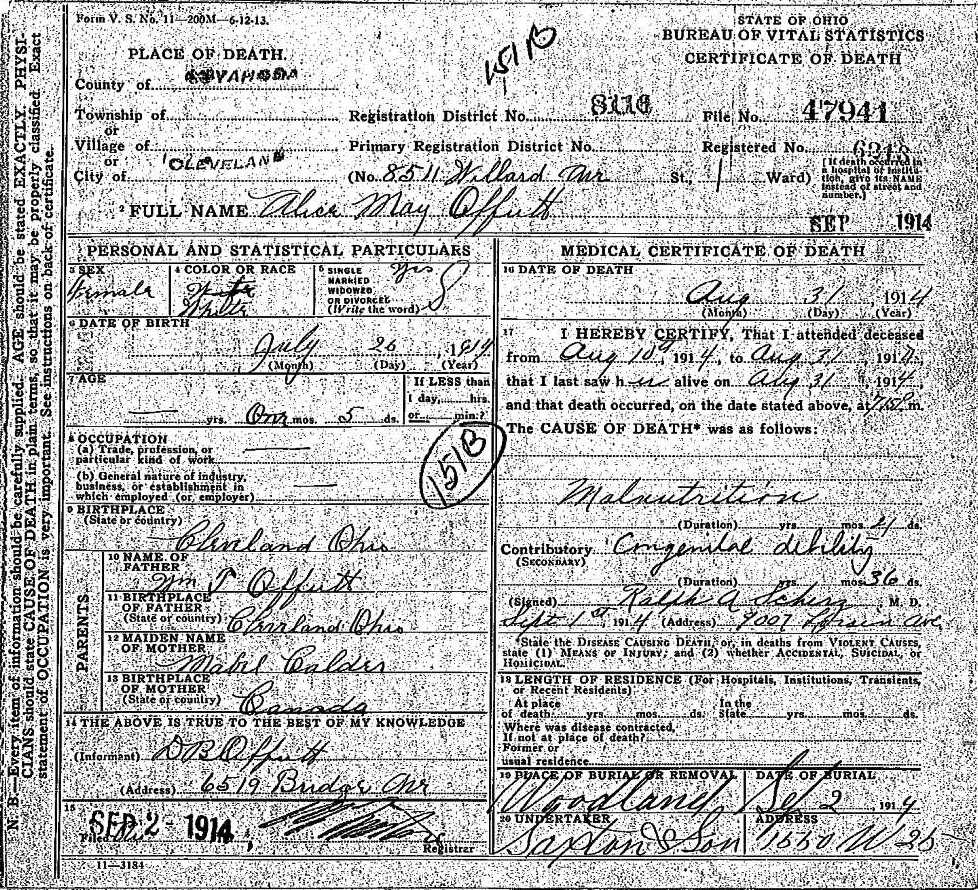 Form V. S. No. 11—200M—6-12-13.
151B
STATE OF OHIO
BUREAU OF VITAL STATISTICS
CERTIFICATE OF DEATH
PLACE OF DEATH.
County of CUYAHOGA
Township of
or
Village of
or
City of CLEVELAND
Registration District No. 8116
File No. 47941
Primary Registration District No.
Registered No.
(No. 8511 Willard Ave St., Ward)
(If death occurred in a hospital or institution, give its NAME instead of street and number.)
2 FULL NAME Alice May Offutt
SEP 1914
PERSONAL AND STATISTICAL PARTICULARS
3 SEX
Female
4 COLOR OR RACE
White
5 SINGLE
MARRIED
WIDOWED
OR DIVORCED
(Write the word)
S
6 DATE OF BIRTH
July 26, 1914
(Month) (Day) (Year)
7 AGE
— yrs. One mos. 5 ds.
If LESS than
1 day, hrs.
or min.?
8 OCCUPATION
(a) Trade, profession, or
particular kind of work
(b) General nature of industry,
business, or establishment in
which employed (or employer)
151B
9 BIRTHPLACE
(State or country)
Cleveland Ohio
PARENTS
10 NAME OF
FATHER
Wm T Offutt
11 BIRTHPLACE
OF FATHER
(State or country)
Cleveland Ohio
12 MAIDEN NAME
OF MOTHER
Mabel Calder
13 BIRTHPLACE
OF MOTHER
(State or country)
Canada
14 THE ABOVE IS TRUE TO THE BEST OF MY KNOWLEDGE
(Informant) D B Offutt
(Address) 6519 Bridge Ave
15
SEP 2 - 1914
Registrar
11—3184
MEDICAL CERTIFICATE OF DEATH
16 DATE OF DEATH
Aug 31, 1914
(Month) (Day) (Year)
17 I HEREBY CERTIFY, That I attended deceased
from Aug 10th, 1914, to Aug 31 1914,
that I last saw her alive on Aug 31 1914,
and that death occurred, on the date stated above, at m.
The CAUSE OF DEATH* was as follows:
Malnutrition
(Duration) yrs. mos. 21 ds.
Contributory Congenital debility
(SECONDARY)
(Duration) yrs. mos. 36 ds.
(Signed) Ralph A M. D.
Sept 1st 1914 (Address) 9007 Lorain Ave
*State the DISEASE CAUSING DEATH, or, in deaths from VIOLENT CAUSES,
state (1) MEANS OF INJURY; and (2) whether ACCIDENTAL, SUICIDAL, or
HOMICIDAL.
18 LENGTH OF RESIDENCE (For Hospitals, Institutions, Transients,
or Recent Residents)
At place
of death yrs. mos. ds.
In the
State yrs. mos. ds.
Where was disease contracted,
If not at place of death?
Former or
usual residence
19 PLACE OF BURIAL OR REMOVAL
Woodland
DATE OF BURIAL
Sep 2 1914
20 UNDERTAKER
Saxton & Son
ADDRESS
1660 W 25
N. B.—Every item of information should be carefully supplied. AGE should be stated EXACTLY. PHYSI-
CIANS should state CAUSE OF DEATH in plain terms, so that it may be properly classified. Exact
statement of OCCUPATION is very important. See instructions on back of certificate.